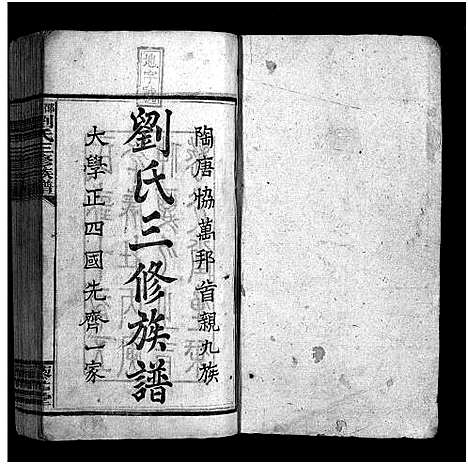 陶唐恊萬邦首親九族
劉氏三修族譜
大學正四國先齊一家
地字號
劉氏三修族譜